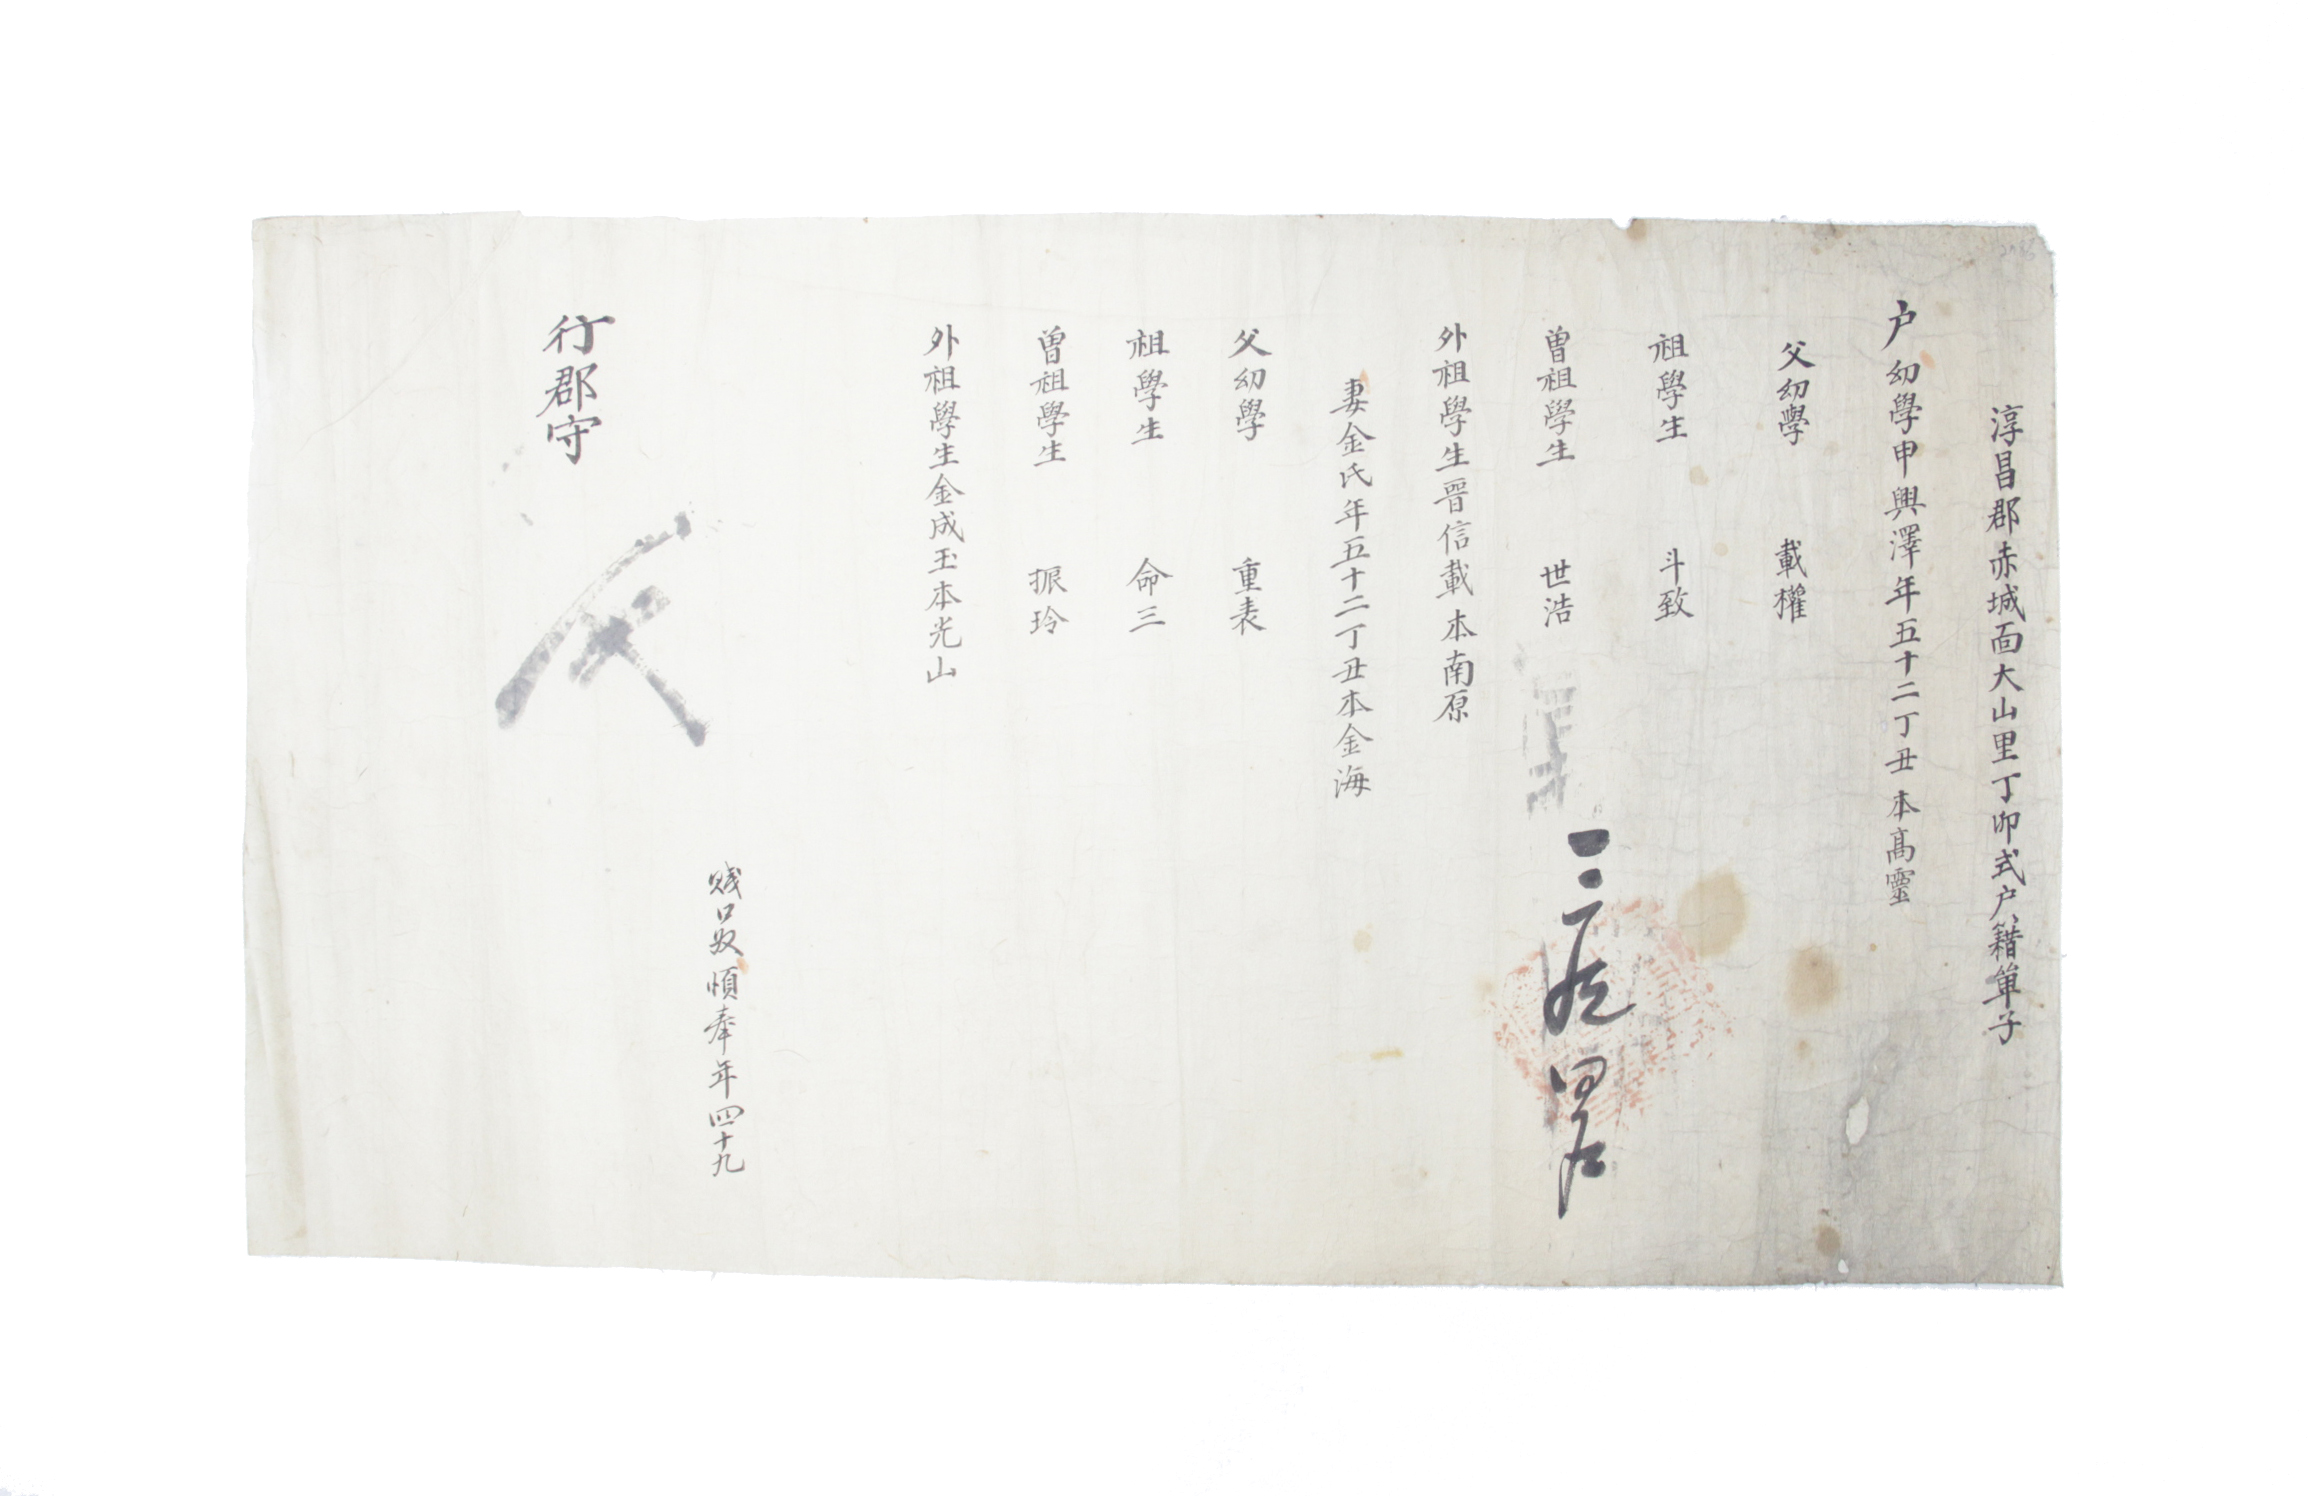 淳昌郡赤城面大山里丁卯式户籍單子
户幼學申興澤年五十二丁丑本高靈
父幼學 載權
祖學生 斗致
曾祖學生 世浩
外祖學生晉信載本南原
妻金氏年五十二丁丑本金海
父幼學 重表
祖學生 命三
曾祖學生 振玲
外祖學生金成玉本光山
賤口奴順奉年四十九
行郡守